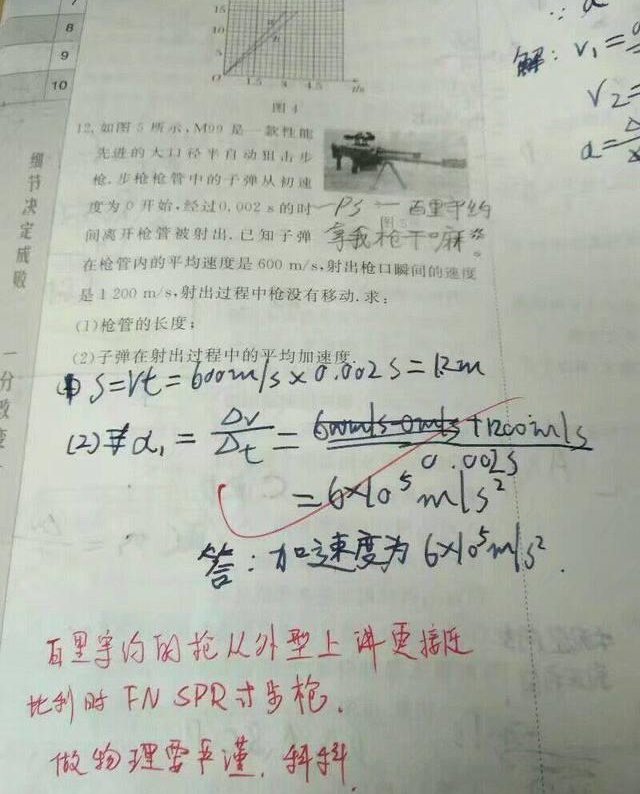 7
8
9
10
细节决定成败
一分数
15
10
5
0 1.5 3 4.5 t/s
图 4
12. 如图 5 所示, M99 是一款性能
先进的大口径半自动狙击步
枪. 步枪枪管中的子弹从初速
度为 0 开始, 经过 0.002 s 的时
间离开枪管被射出. 已知子弹
在枪管内的平均速度是 600 m/s, 射出枪口瞬间的速度
是 1 200 m/s, 射出过程中枪没有移动. 求:
(1)枪管的长度;
(2)子弹在射出过程中的平均加速度.
图 5
PS — 百里守约
拿我枪干嘛
(1) S=Vt=600m/s×0.002s=1.2m
(2) a₁ = Δv/Δt = 600m/s-0m/s +1200m/s / 0.002s
=6×10⁵ m/s²
答: 加速度为 6×10⁵m/s².
百里守约的枪从外型上讲更接近
比利时 FN SPR 式步枪.
做物理要严谨. 科科
∵ a
解: V₁=
V₂=
a=